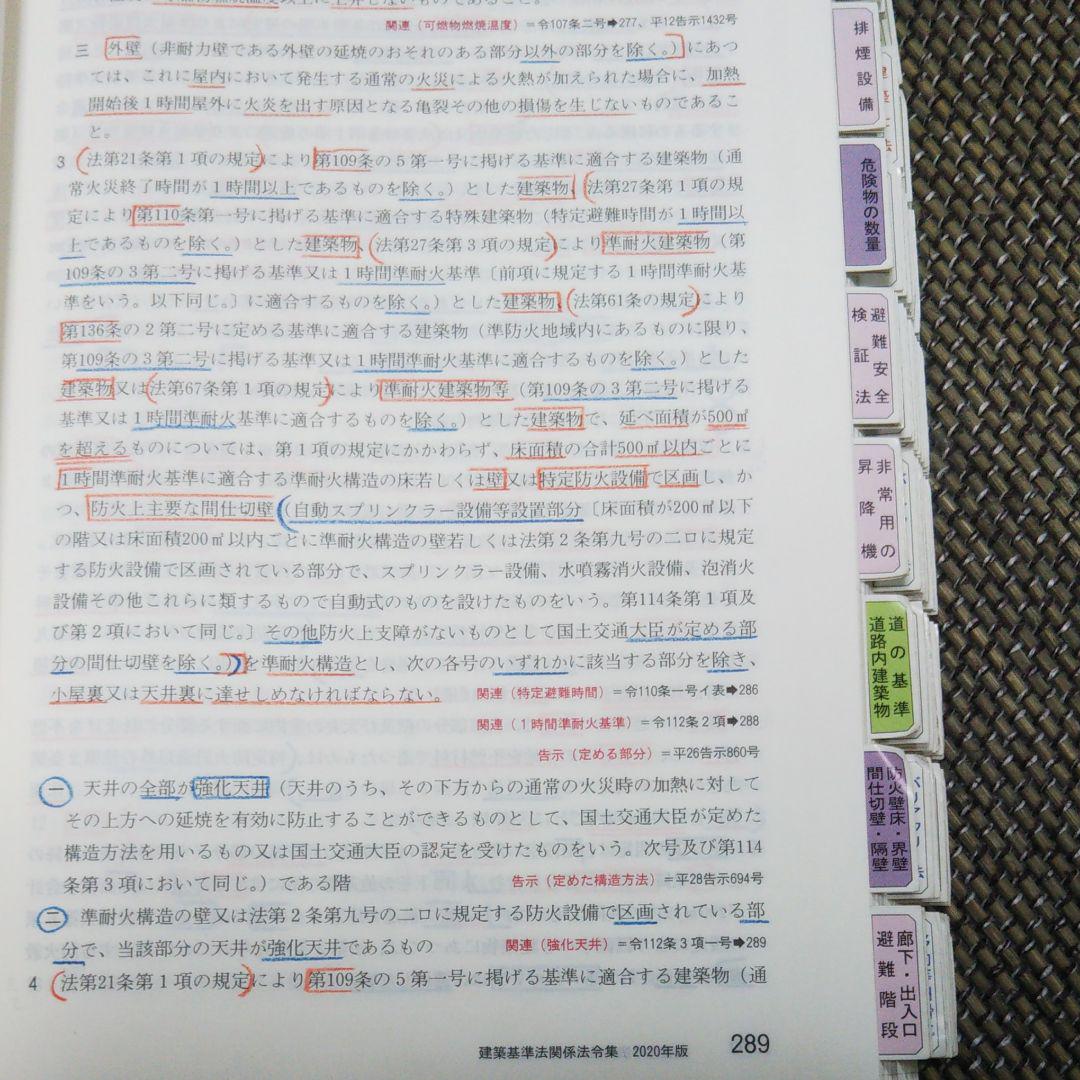 関連（可燃物燃焼温度）＝令107条二号➡277、平12告示1432号
三　外壁（非耐力壁である外壁の延焼のおそれのある部分以外の部分を除く。）にあつ
ては、これに屋内において発生する通常の火災による火熱が加えられた場合に、加熱
開始後１時間屋外に火炎を出す原因となる亀裂その他の損傷を生じないものであるこ
と。
3　法第21条第１項の規定により第109条の５第一号に掲げる基準に適合する建築物（通
常火災終了時間が１時間以上であるものを除く。）とした建築物、法第27条第１項の規
定により第110条第一号に掲げる基準に適合する特殊建築物（特定避難時間が１時間以
上であるものを除く。）とした建築物、法第27条第３項の規定により準耐火建築物（第
109条の３第二号に掲げる基準又は１時間準耐火基準〔前項に規定する１時間準耐火基
準をいう。以下同じ。〕に適合するものを除く。）とした建築物、法第61条の規定により
第136条の２第二号に定める基準に適合する建築物（準防火地域内にあるものに限り、
第109条の３第二号に掲げる基準又は１時間準耐火基準に適合するものを除く。）とした
建築物又は法第67条第１項の規定により準耐火建築物等（第109条の３第二号に掲げる
基準又は１時間準耐火基準に適合するものを除く。）とした建築物で、延べ面積が500㎡
を超えるものについては、第１項の規定にかかわらず、床面積の合計500㎡以内ごとに
１時間準耐火基準に適合する準耐火構造の床若しくは壁又は特定防火設備で区画し、か
つ、防火上主要な間仕切壁（自動スプリンクラー設備等設置部分〔床面積が200㎡以下
の階又は床面積200㎡以内ごとに準耐火構造の壁若しくは法第２条第九号の二ロに規定
する防火設備で区画されている部分で、スプリンクラー設備、水噴霧消火設備、泡消火
設備その他これらに類するもので自動式のものを設けたものをいう。第114条第１項及
び第２項において同じ。〕その他防火上支障がないものとして国土交通大臣が定める部
分の間仕切壁を除く。）を準耐火構造とし、次の各号のいずれかに該当する部分を除き、
小屋裏又は天井裏に達せしめなければならない。　関連（特定避難時間）＝令110条一号イ表➡286
関連（１時間準耐火基準）＝令112条２項➡288
告示（定める部分）＝平26告示860号
一　天井の全部が強化天井（天井のうち、その下方からの通常の火災時の加熱に対して
その上方への延焼を有効に防止することができるものとして、国土交通大臣が定めた
構造方法を用いるもの又は国土交通大臣の認定を受けたものをいう。次号及び第114
条第３項において同じ。）である階　告示（定めた構造方法）＝平28告示694号
二　準耐火構造の壁又は法第２条第九号の二ロに規定する防火設備で区画されている部
分で、当該部分の天井が強化天井であるもの　関連（強化天井）＝令112条３項一号➡289
4　法第21条第１項の規定により第109条の５第一号に掲げる基準に適合する建築物（通
建築基準法関係法令集　2020年版　289
排煙設備
危険物の数量
避難安全
検証法
非常用の
昇降機
道の基準
道路内建築物
防火壁床・界壁
間仕切壁・隔壁
廊下・出入口
避難階段